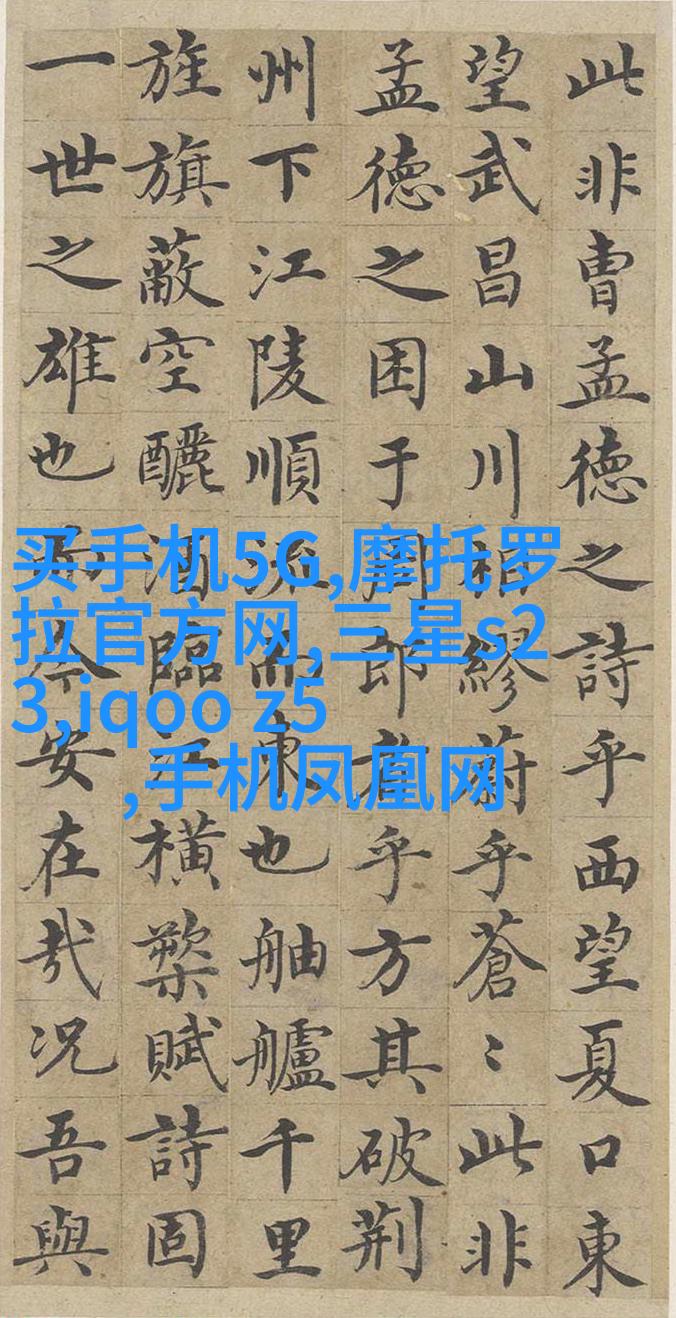 此非曹孟德之詩乎西望夏口東
望武昌山川相繆蔚乎蒼〻此非
孟德之困于周郎者乎方其破荆
州下江陵順流而東也舳艫千里
旌旗蔽空釃酒臨江横槊賦詩固
一世之雄也而今安在哉况吾與
买手机5G,摩托罗
拉官方网,三星s2
3,iqoo z5
,手机凤凰网